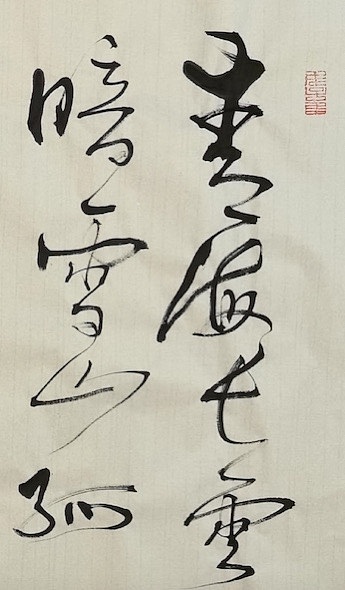 青海长雲
暗雪山孤